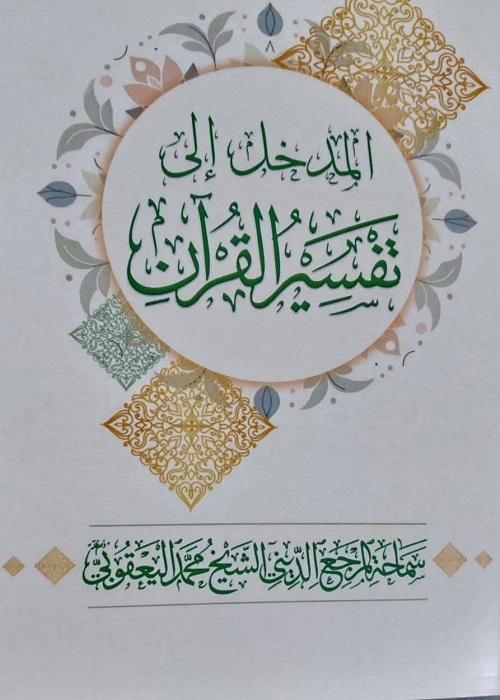 المدخل إلى
تفسير القرآن
سماحة المرجع الديني الشيخ محمد اليعقوبي